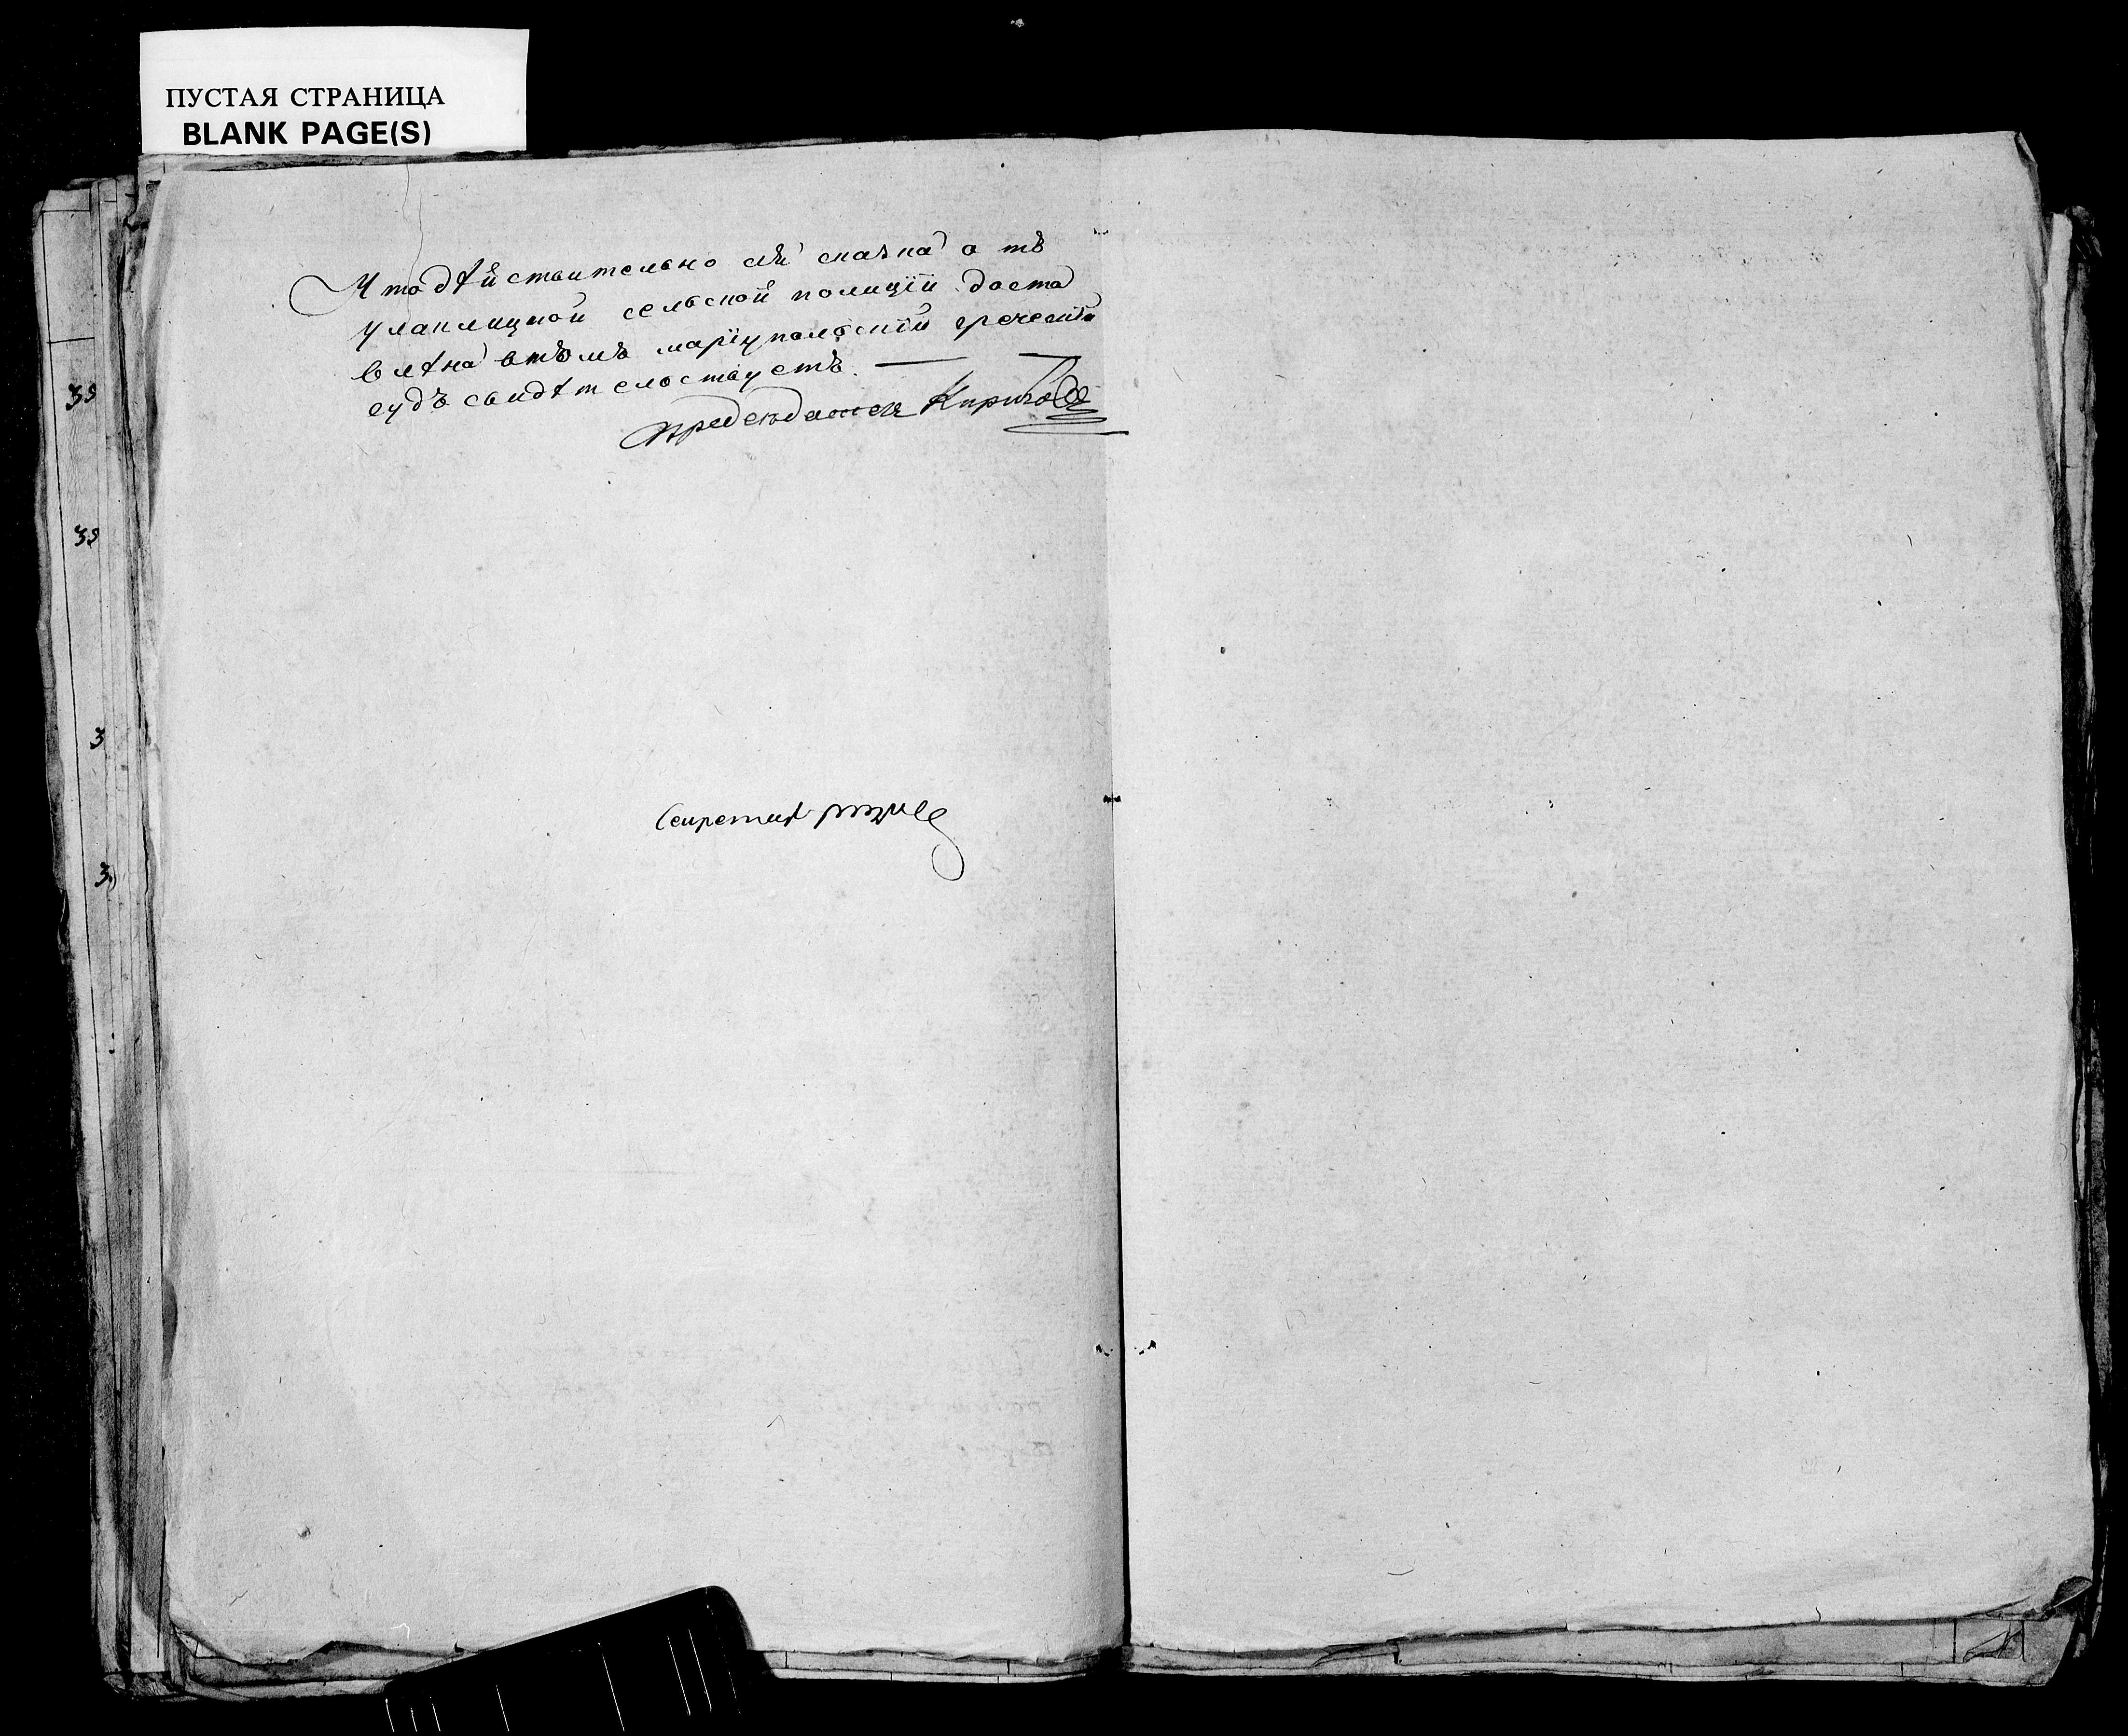 ПУСТАЯ СТРАНИЦА
BLANK PAGE(S)
Что дѣйствительно сiя сказка о тъ
улаклицкой сельской полицiи доста
влѣна в томъ марiупольскiй греческiй
судъ свидѣтелствуетъ. —
председатель
Секретарь
39
39
3
3